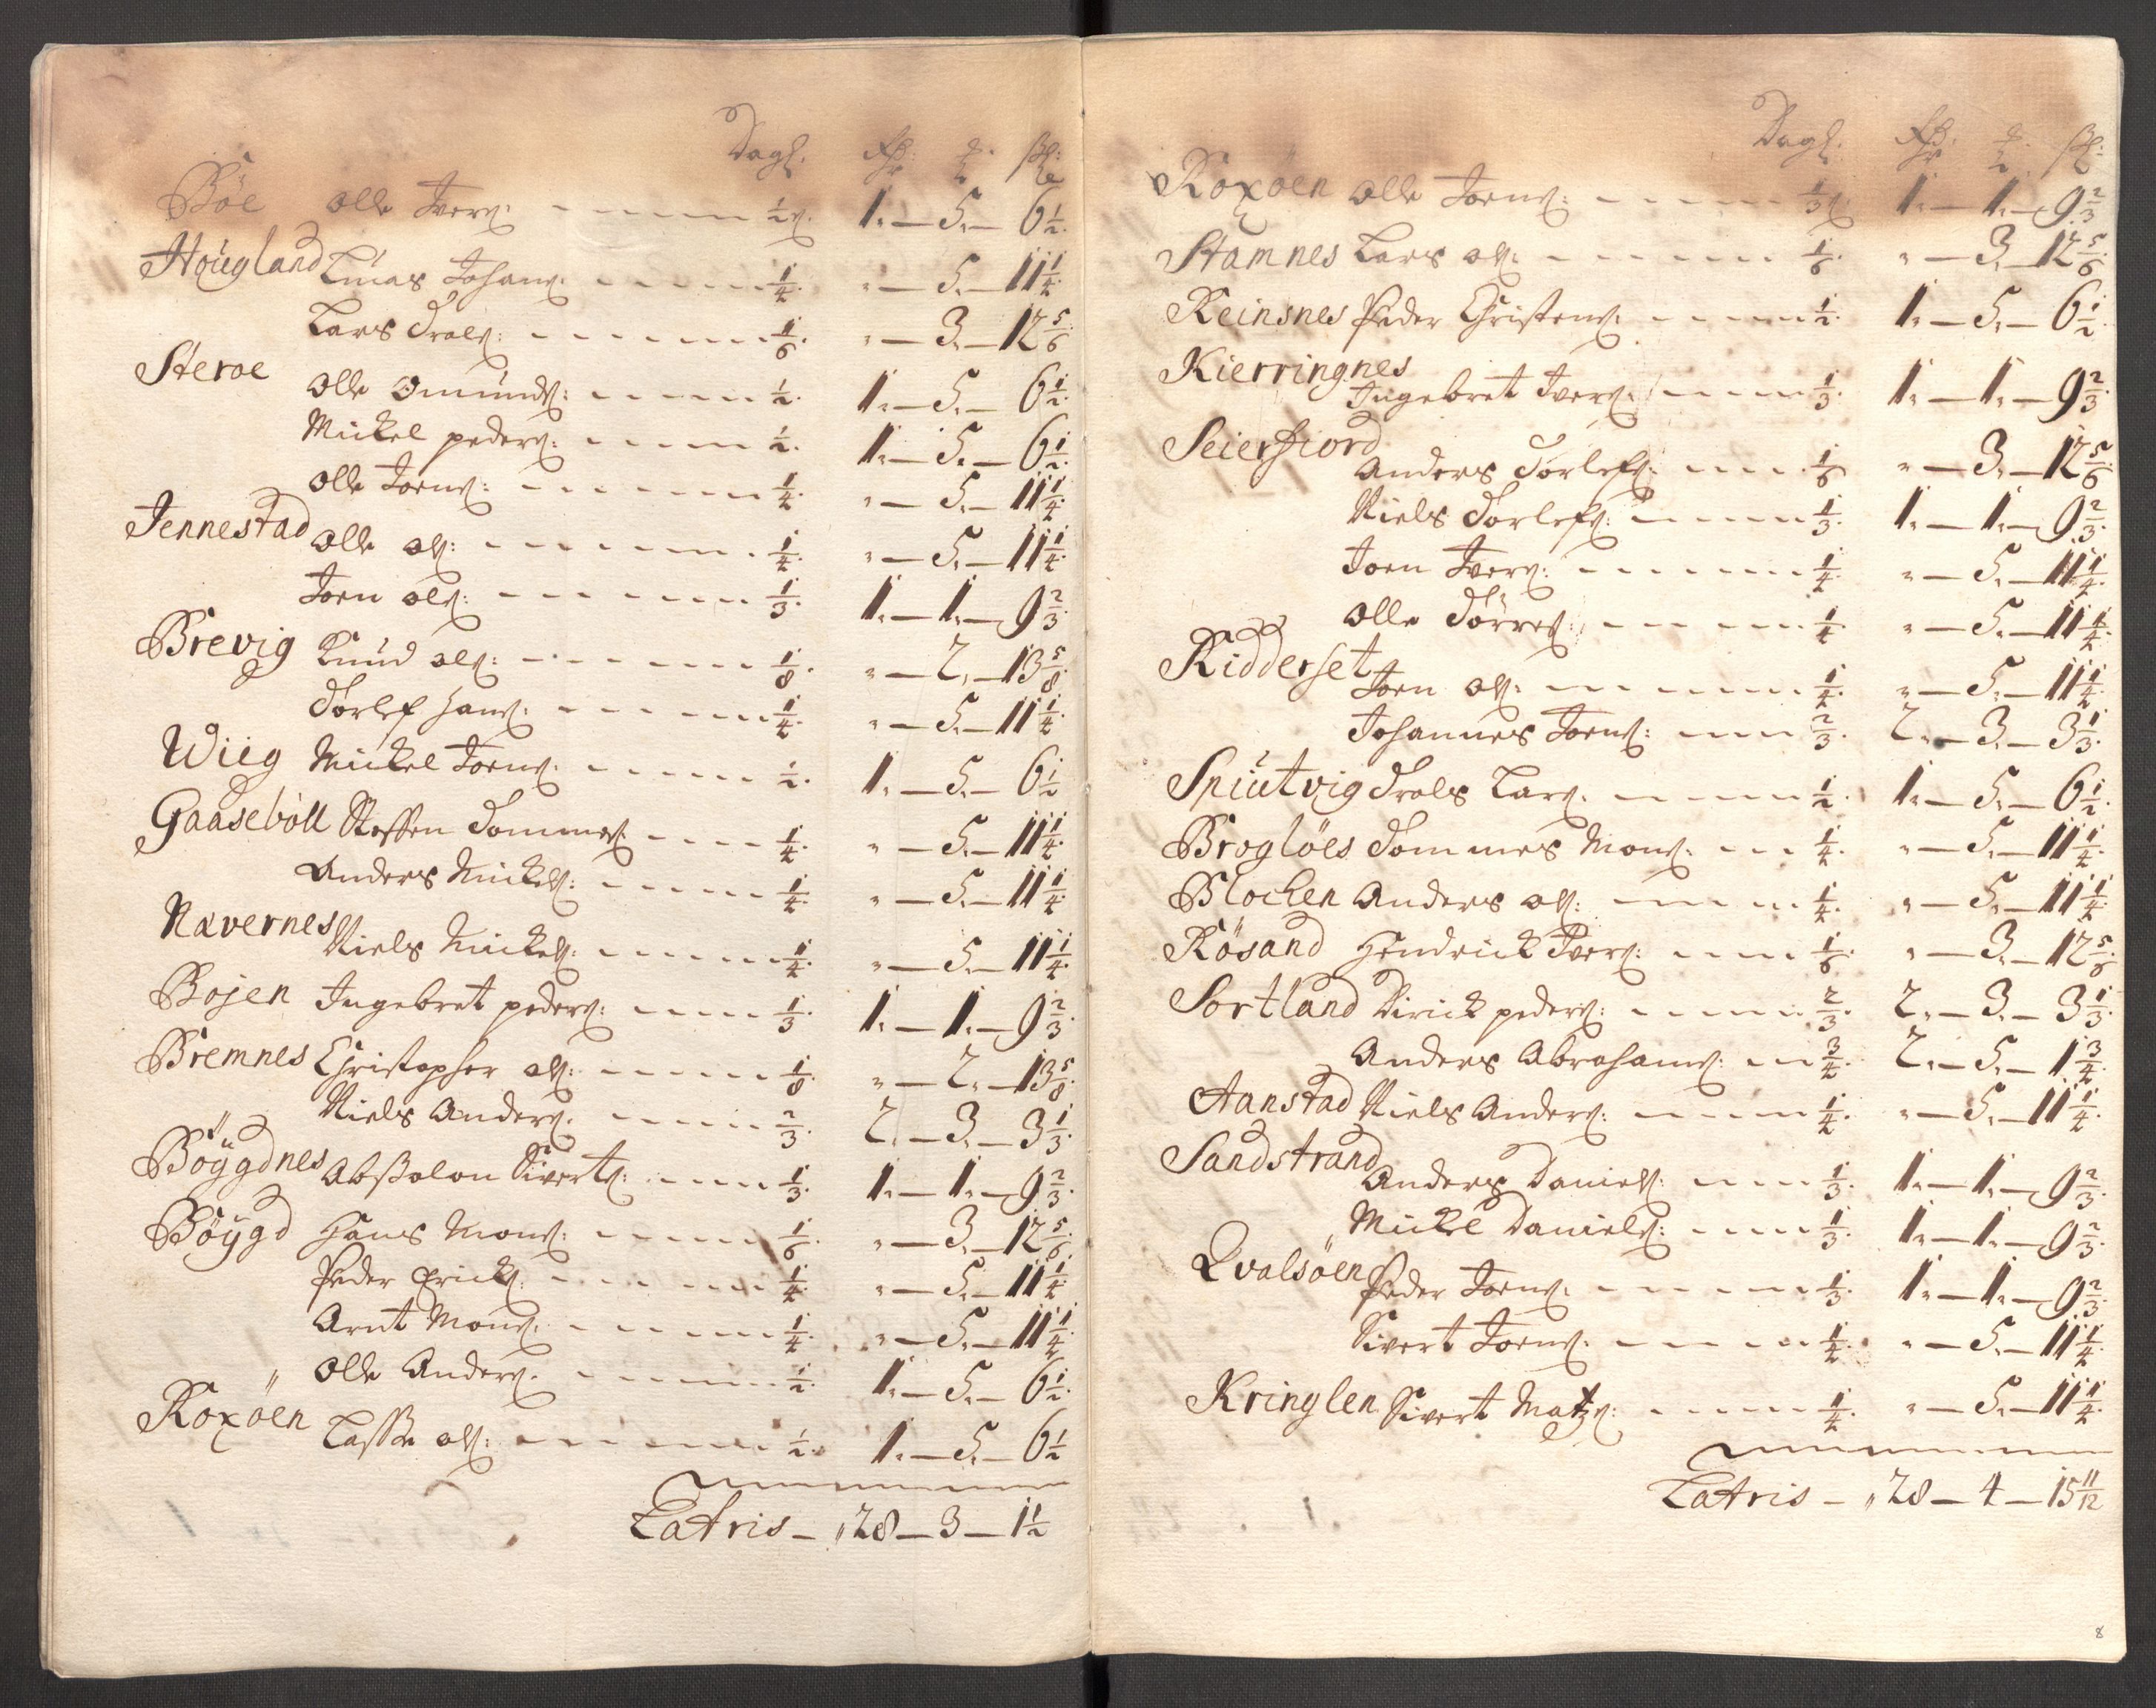 Dagl: Rdr: ℔. ßl:
Böe Olle Iverß: - - - - - - ½ß. 1. — 5. — 6½.
Hougland Lucas Johanß: - - - - - ¼. " — 5. — 11¼.
Lars Trolß: - - - - - - - ⅙. " — 3. — 12⅚.
Steroe
Olle Omundß: - - - - - ½. 1. — 5. — 6½.
Mickel pederß: - - - - - ½. 1. — 5. — 6½.
Olle Joenß: - - - - - - - ¼. " — 5. — 11¼.
Jennestad Olle olß: - - - - - - - ¼. " — 5. — 11¼.
Joen olß: - - - - - - - ⅓. 1. — 1. — 9⅔.
Brevig Knud olß: - - - - - - - ⅛. " — 2. — 13⅝.
Torlef Hanß: - - - - - - ¼. " — 5. — 11¼.
Wiig Mickel Joenß. - - - - - - ½. 1. — 5. — 6½
Gaaseböll Steffen Tommeß. - - - - ¼. " — 5. — 11¼.
Anders Mickelß: - - - - - ¼. " — 5. — 11¼.
Nævernes Niels Mickelß: - - - - - - ¼. " — 5. — 11¼.
Bojen Ingebret pederß: - - - - - ⅓. 1. — 1. — 9⅔.
Bremnes Christopher olß: - - - - - ⅛. " — 2. — 13⅝.
Niels Anderß. - - - - - - ⅔. 2. — 3. — 3⅓.
Böÿgdnes Abßolon Sivertß: - - - - ⅓. 1. — 1. — 9⅔.
Böÿgd Hans Monß: - - - - - - ⅙. " — 3. — 12⅚.
Peder Erickß: - - - - - - - ¼. " — 5. — 11¼.
Arnt Monß. - - - - - - - ¼. " — 5. — 11¼.
" Olle Anderß. - - - - - - - ½. 1. — 5. — 6½.
Roxöen Lasse olß: - - - - - - - ½. 1. — 5. — 6½
Latris — " 28 — 3 — 1½
Dagl: Rdr: ℔. ßl:
Roxöen Olle Joenß: - - - - - - ⅓ß. 1. — 1. — 9⅔
Stamnes Lars olß. - - - - - - ⅙. " — 3. — 12⅚.
Reinsnes Peder Christenß. - - - - - ½. 1. — 5. — 6½.
Kierringnes
Ingebret Iverß: - - - - - ⅓. 1. — 1. — 9⅔.
Seierfiord
Anders Torlefß: - - - - ⅙ " — 3. — 12⅚.
Niels Torlefß: - - - - - ⅓. 1. — 1. — 9⅔.
Joen Iverß: - - - - - - - ¼. " — 5. — 11¼.
Olle Törreß: - - - - - - ¼. " — 5. — 11¼.
Ridderset
Joen olß: - - - - - - - ¼. " — 5. — 11¼.
Johannes Joenß: - - - ⅔. 2. — 3. — 3⅓.
Spiutvig Trols Larß. - - - - - ½. 1. — 5. — 6½.
Broglöes Tommes Monß: - - - ¼. " — 5. — 11¼.
Blochen Anders olß: - - - - - ¼. " — 5. — 11¼.
Rösand Hendrick Iverß: - - - - ⅙. " — 3. — 12⅚.
Sortland Dirick pederß: - - - - - ⅔. 2. — 3. — 3⅓.
Anders Abrahamß. - - ¾. 2. — 5. — 1¾.
Aanstad Niels Anderß: - - - - - ¼. " — 5. — 11¼.
Sandstrand
Anders Danielß: - - - - ⅓. 1. — 1. — 9⅔.
" Mickel Danielß: - - - - ⅓. 1. — 1. — 9⅔.
Qvalsöen
Peder Joenß. - - - - - - ⅓. 1. — 1. — 9⅔.
Sivert Joenß. - - - - - - ¼. " — 5. — 11¼.
Kringlen Sivert Matzß: - - - - - ¼. " — 5. — 11¼.
Latris — " 28 — 4 — 15 11/12
8